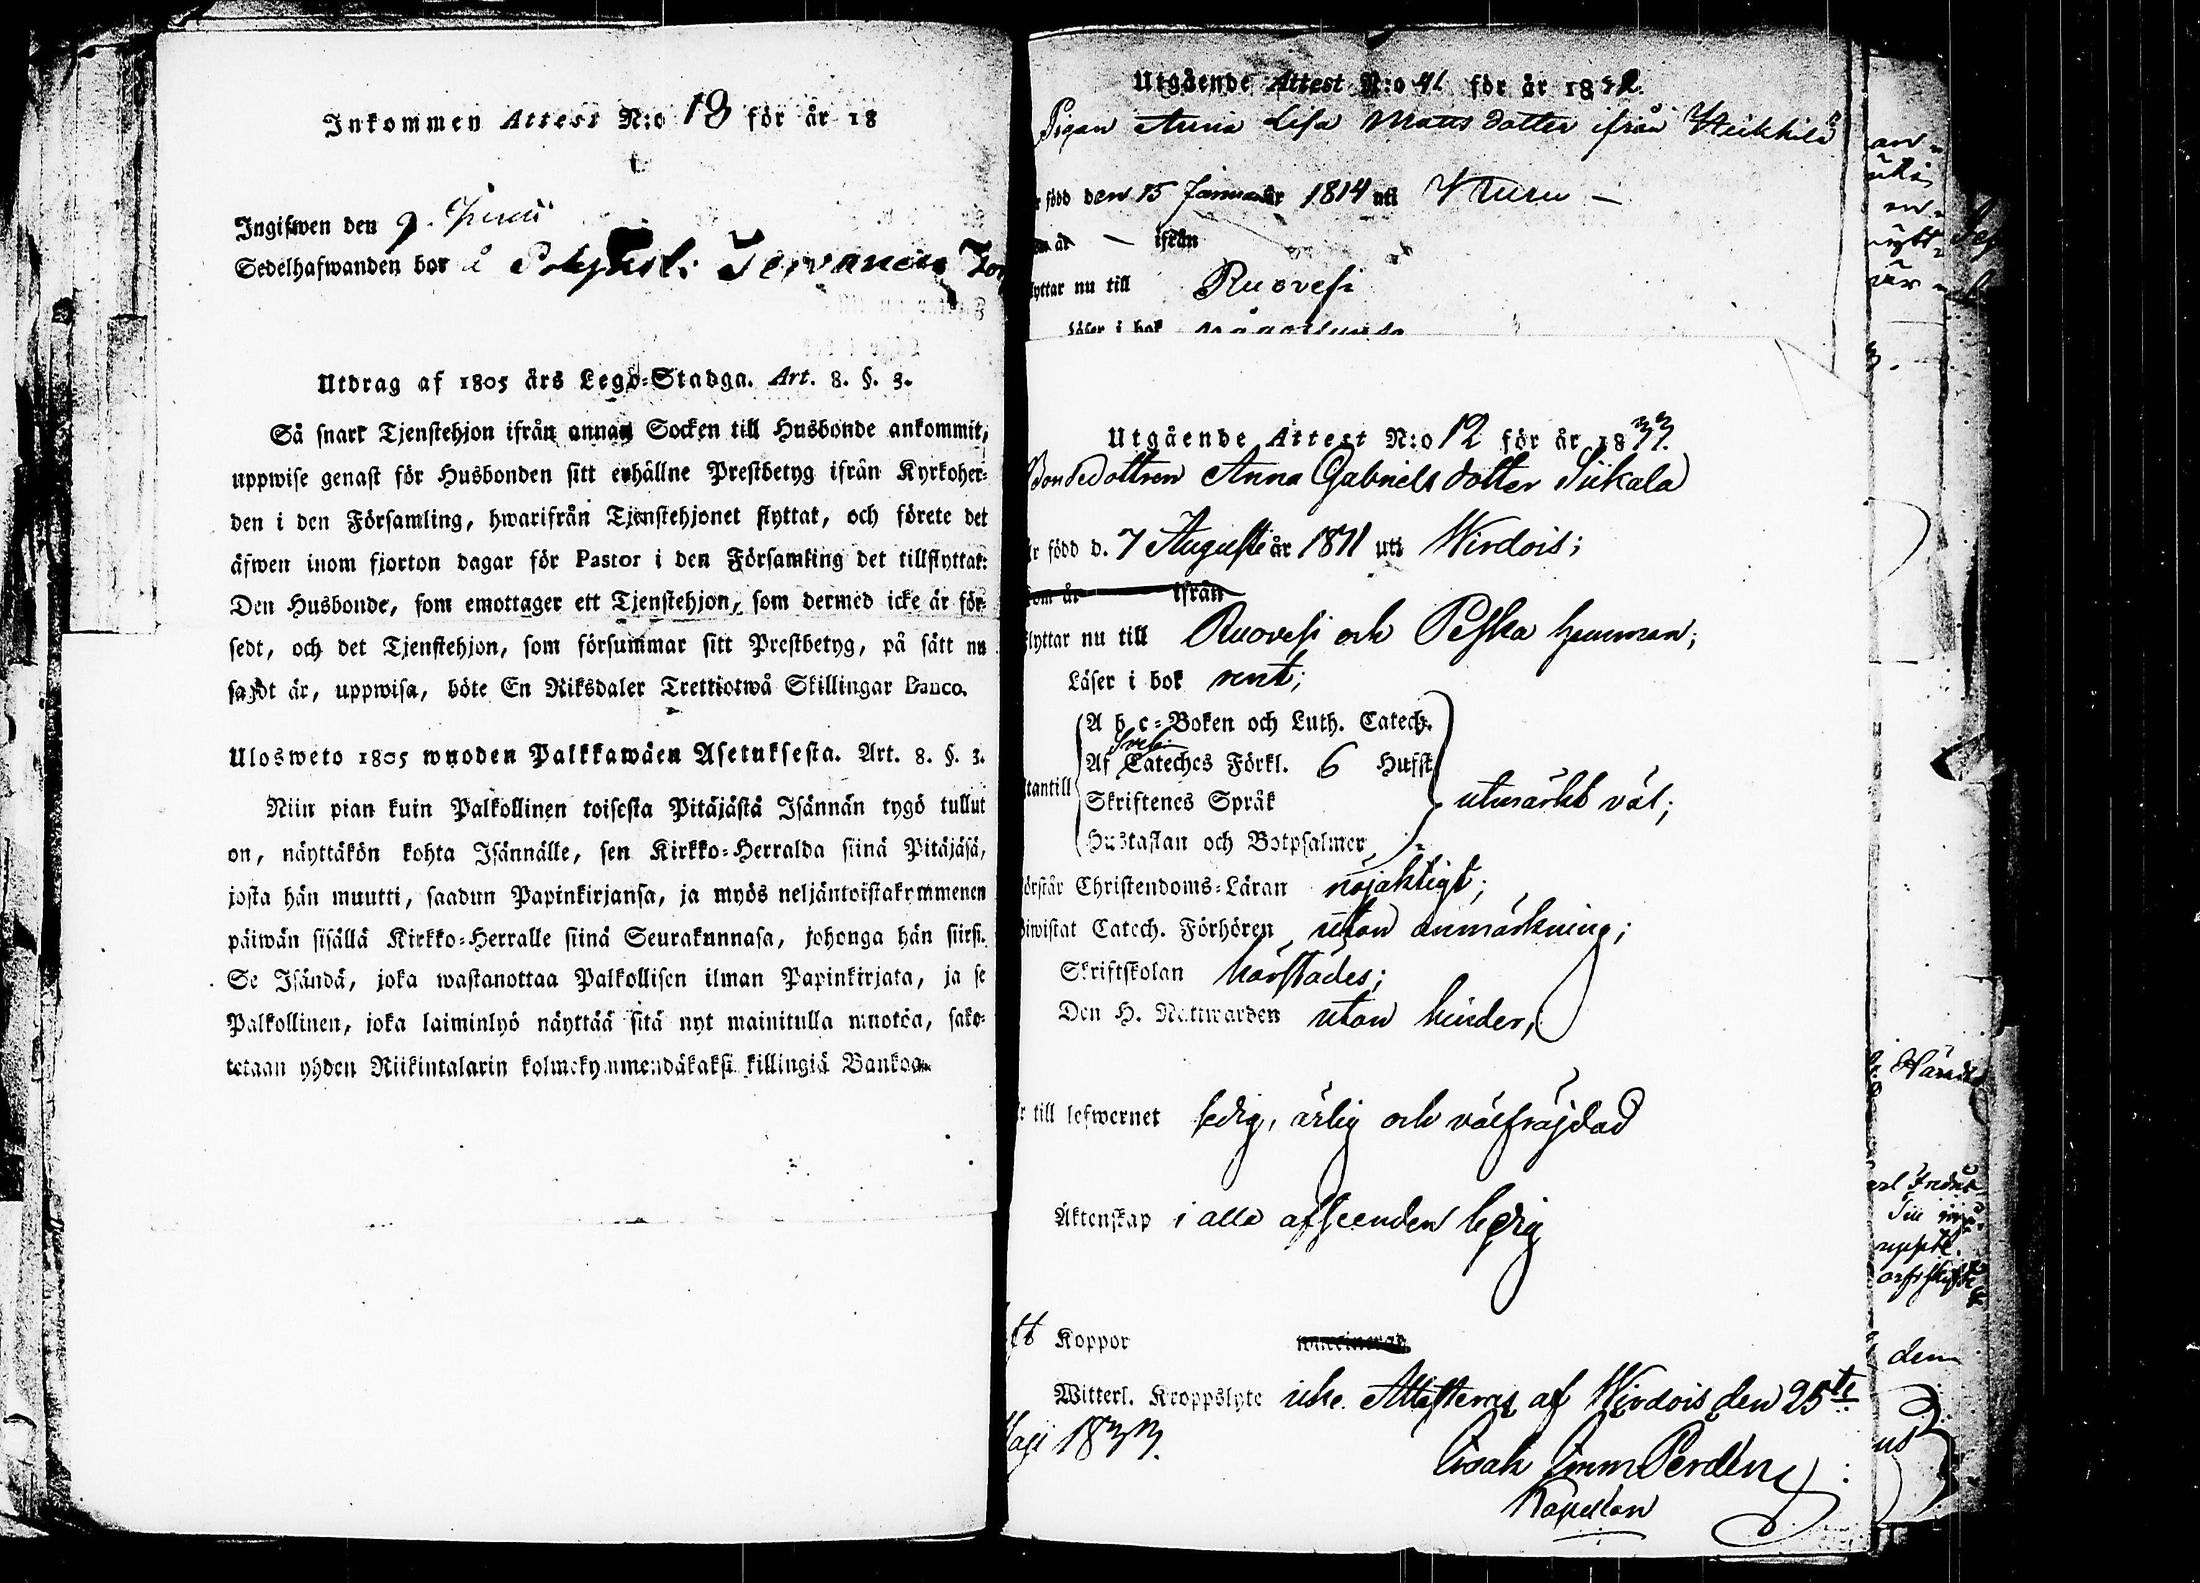 Inkommen Attest N:o 18 för år 18
Ingifwen den 9. Junii
Sedelhafwanden bor å
Utdrag af 1805 års Lego-Stadga. Art. 8. §. 3.
Så snart Tjenstehjon ifrån annan Socken till Husbonde ankommit,
uppwise genast för Husbonden sitt erhållne Prestbetyg ifrån Kyrkoher-
den i den Församling, hwarifrån Tjenstehjonet flyttat, och förete det
äfwen inom fjorton dagar för Pastor i den Församling det tillflyttat:
Den Husbonde, som emottager ett Tjenstehjon, som dermed icke är för-
sedt, och det Tjenstehjon, som försummar sitt Prestbetyg, på sätt nu
sagdt är, uppwisa, böte En Riksdaler Trettiotwå Skillingar Banco.
Ulosweto 1805 wuoden Palkkawäen Asetuksesta. Art. 8. §. 3.
Niin pian kuin Palkollinen toisesta Pitäjästä Isännän tygö tullut
on, näyttäkön kohta Isännälle, sen Kirkko-Herralda siinä Pitäjäsä,
josta hän muutti, saadun Papinkirjansa, ja myös neljäntoistakymmenen
päiwän sisällä Kirkko-Herralle siinä Seurakunnasa, johonga hän siirsi.
Se Isändä, joka wastanottaa Palkollisen ilman Papinkirjata, ja se
Palkollinen, joka laiminlyö näyttää sitä nyt mainitulla muotoa, sako-
tetaan yhden Riikintalarin kolmekymmendäkaksi killingiä Bankoa.
Utgående Attest N:o 41 för år 18
Pigan Anna Lisa Matts dotter ifrån
född den 15 Januari år 1814 uti Kuru
år — ifrån
flyttar nu till Ruovesi
Läser i bok
Utgående Attest N:o 12 för år 1833.
Bondedottren Anna Gabriels dotter Siikala
är född d. 7 Augusti år 1811 uti Wirdois;
som år ifrån
flyttar nu till Ruovesi och Peska hemman;
Läser i bok rent;
A b c-Boken och Luth. Catech.
Sveb.
Af Cateches Förkl. 6 Hufst.
utantill
Skriftenes Språk
utmärkt väl;
Hustaflan och Botpsalmer
förstår Christendoms-Läran nöjaktigt;
biwistat Catech. Förhören utan anmärkning;
Skriftskolan härstädes;
Den H. Nattwarden utan hinder;
är till lefwernet ledig, ärlig och välfräjdad
Äktenskap i alla afseenden ledig
haft Koppor
Witterl. Kroppslyte icke. Attesteras af Wirdois den 25te
Maji 1833.
Isak Imm Perdén
Kapellan